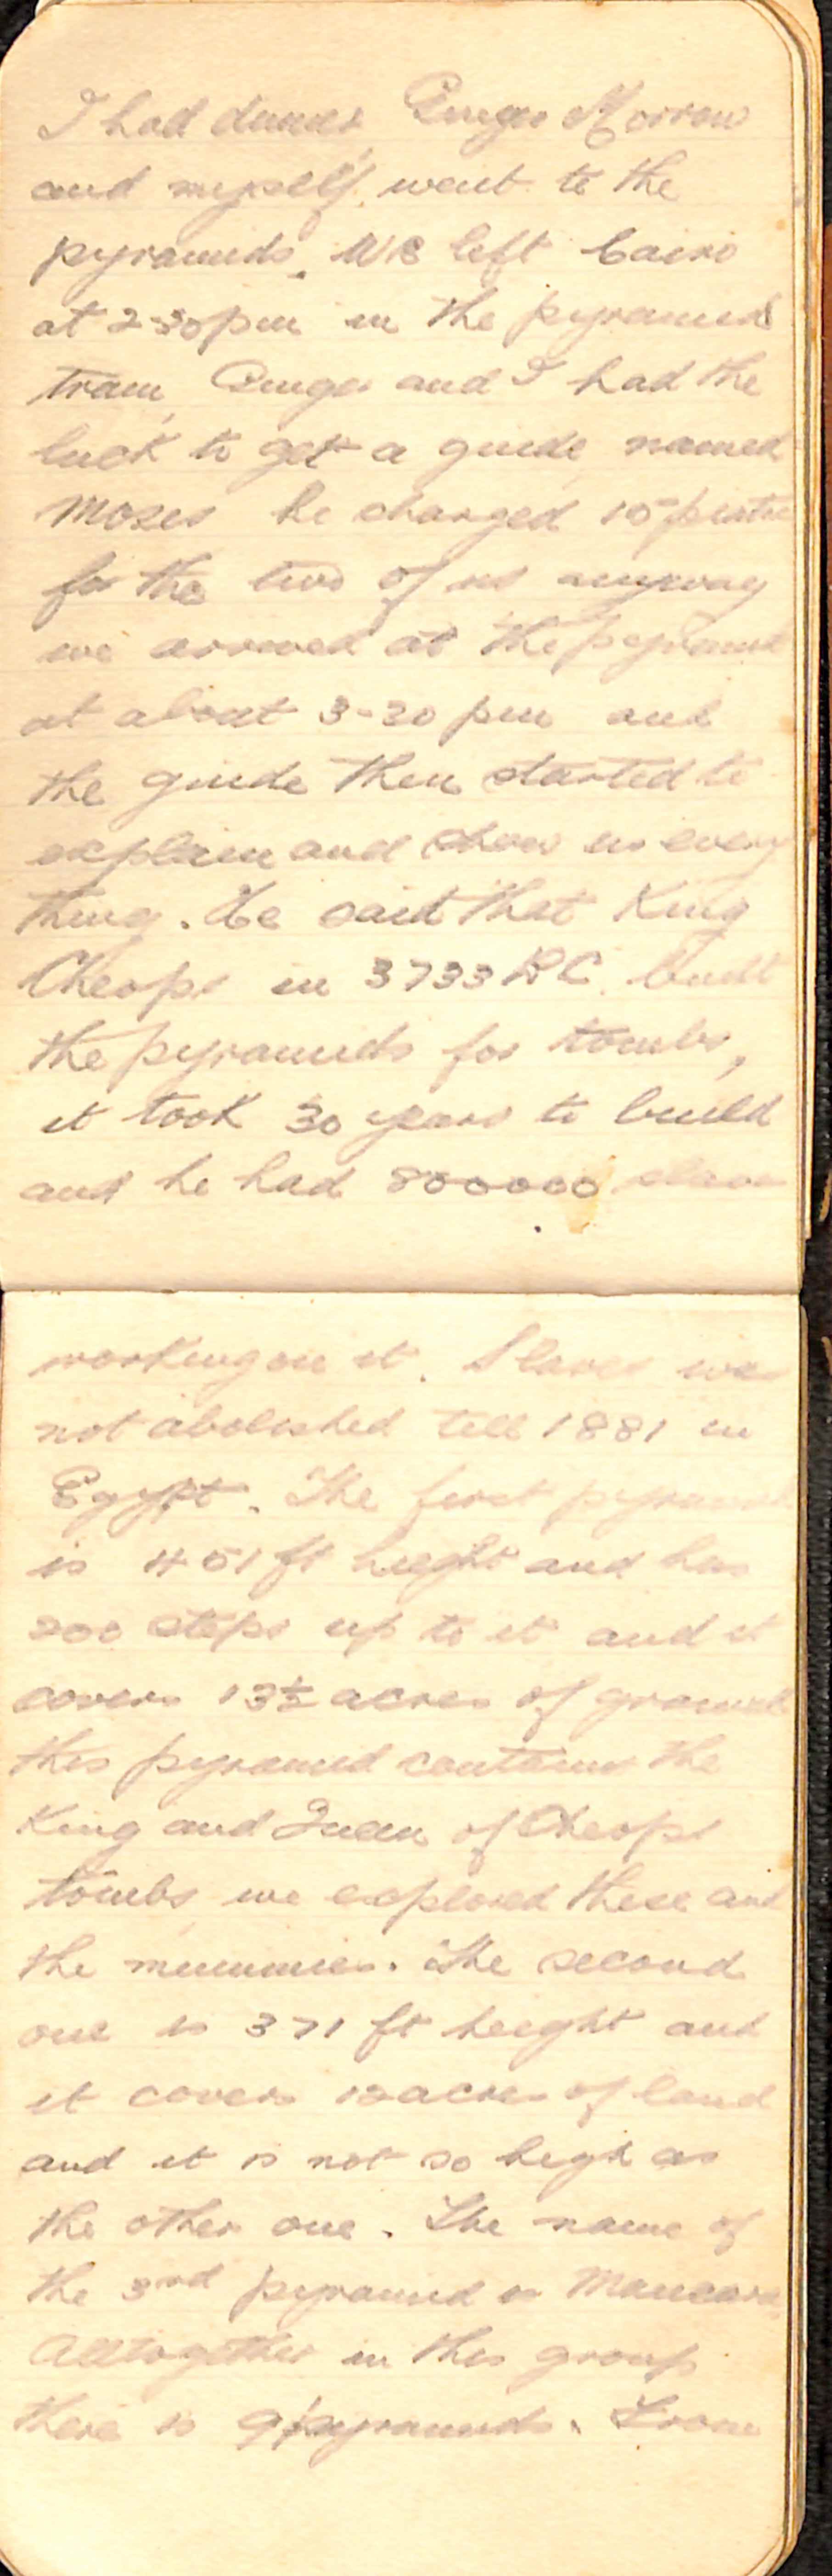 I had dinner, Ginger Morrow
and myself, went to the
pyramids. We left Cairo
at 2-30pm in the pyramids
tram, Ginger and I had the
luck to get a guide, named
Moses he charged 10 piastre
for the two of us anyway
we arrived at the pyramid
at about 3-20 pm and
the guide then started to
explain and show us every
thing. He said that King
Cheops in 3733 BC. built
the pyramids for tombs,
it took 30 years to build
and he had 800000 slaves
working on it. Slaves was
not abolished till 1881 in
Egypt. The first pyramid
is 451 ft height and has
200 steps up to it and it
covers 13½ acres of ground
this pyramid contains the
King and Queen of Cheops
tombs, we explored these and
the mummies. The second
one is 371 ft height and
it covers 12 acres of land
and it is not so high as
the other one. The name of
the 3rd pyramid is
Alltogether in this group
there is 9 pyramids. From